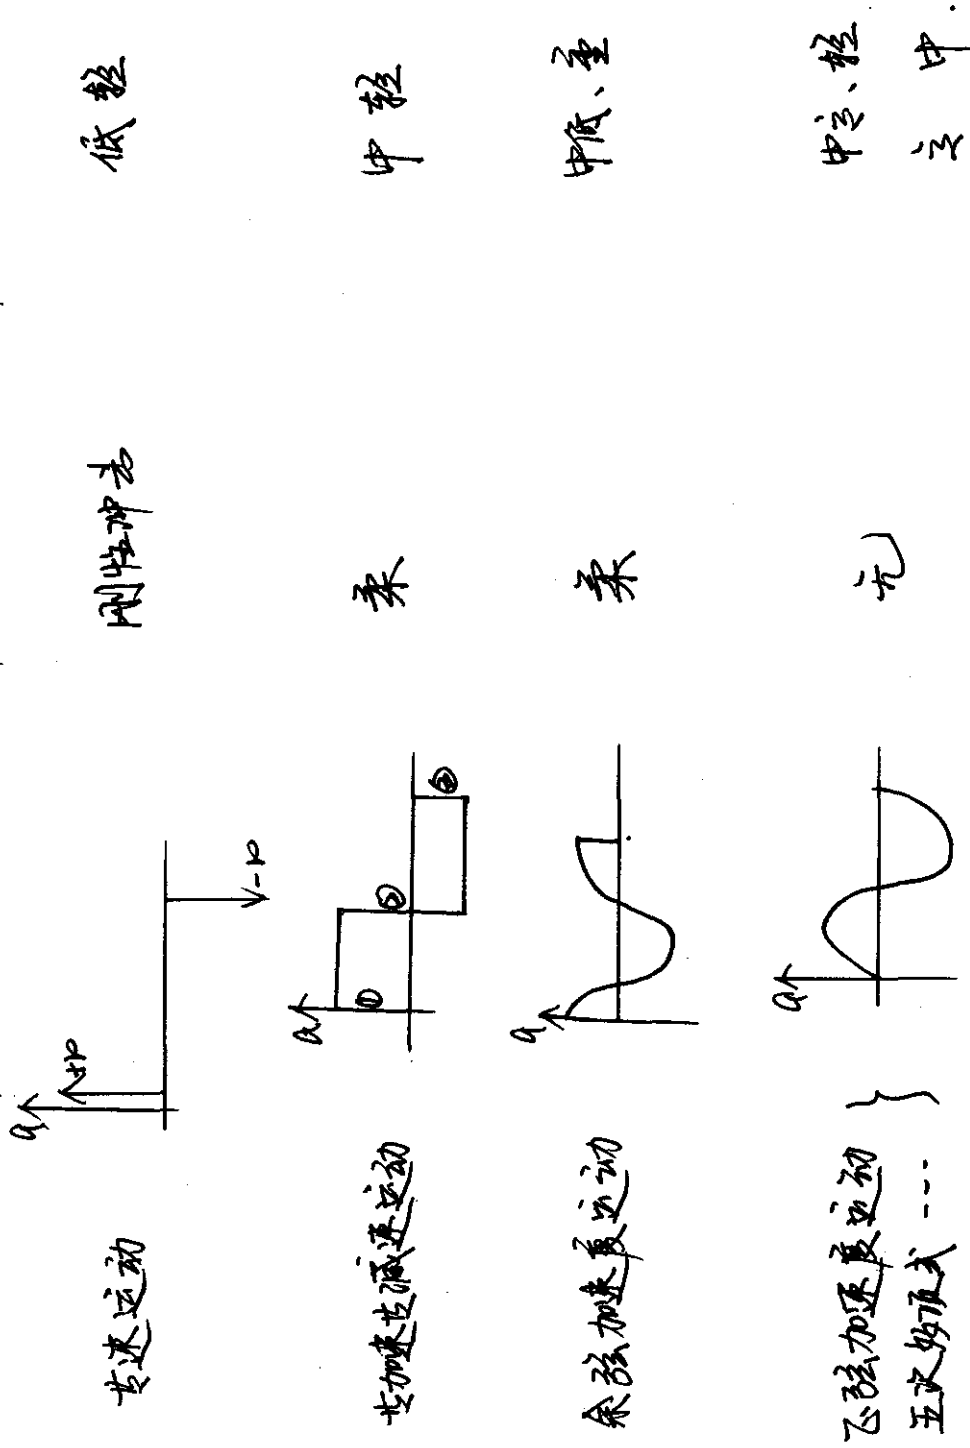 等速运动 a +∞ -∞ 刚性冲击 低 轻
等加速等减速运动 a ① ② ③ 柔 中 轻
余弦加速度运动 a 柔 中低、重
正弦加速度运动 a 无 中高、轻
五次多项式 --- 高 中